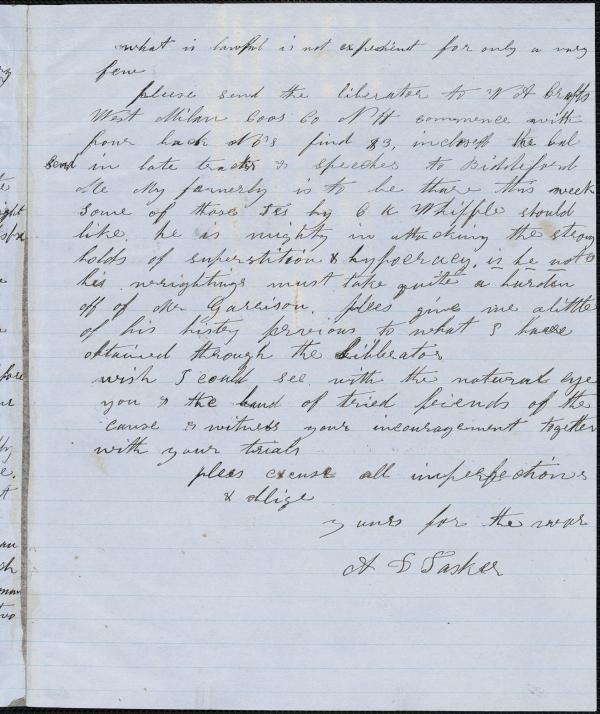 what is lawful is not expedient for only a very
few
please send the liberator to W A Crafts
West Milan Coos Co N H commence with
four back No's find $3, inclosed the bal
send in late tracts & speeches to Biddiford
Me My is to be there this week
Some of those by C K Whipple should
like. he is mighty in attacking the strong
holds of superstition & hypocracy, is he not
his wrightings must take quite a burden
off of Mr Garrison. plees give me alittle
of his histey previous to what I have
obtained through the Libberator
wish I could see with the natural eye
you & the band of tried friends of the
cause & witness your incouragement together
with your trials
plees excuse all imperfections
& oblige
yours for the war
A S Tasker